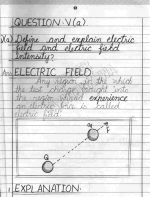 QUESTION V(a).
V(a) Define and explain electric
field and electric field
Intensity?
Ans ELECTRIC FIELD
Any region in the which
the test charge brought into
the region experience
an electric force is called
electric field.
Q
q
F
EXPLANATION.